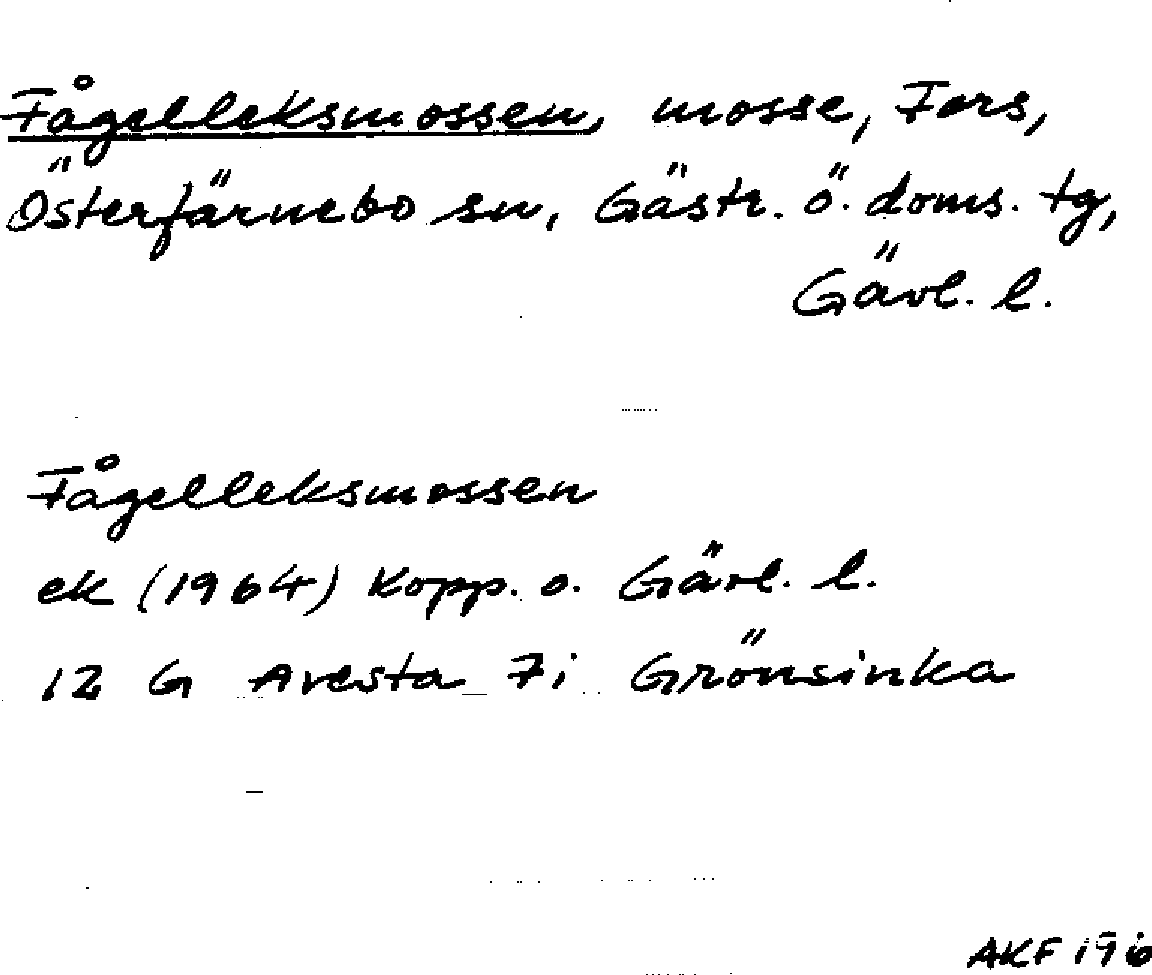 Fågelleksmossen, mosse, Fors,
Österfärnebo sn, Gästr. ö. doms. tg,
Gävl. l.
Fågelleksmossen
ek (1964) Kopp. o. Gävl. l.
12 G Avesta 7i Grönsinka
AKF 196